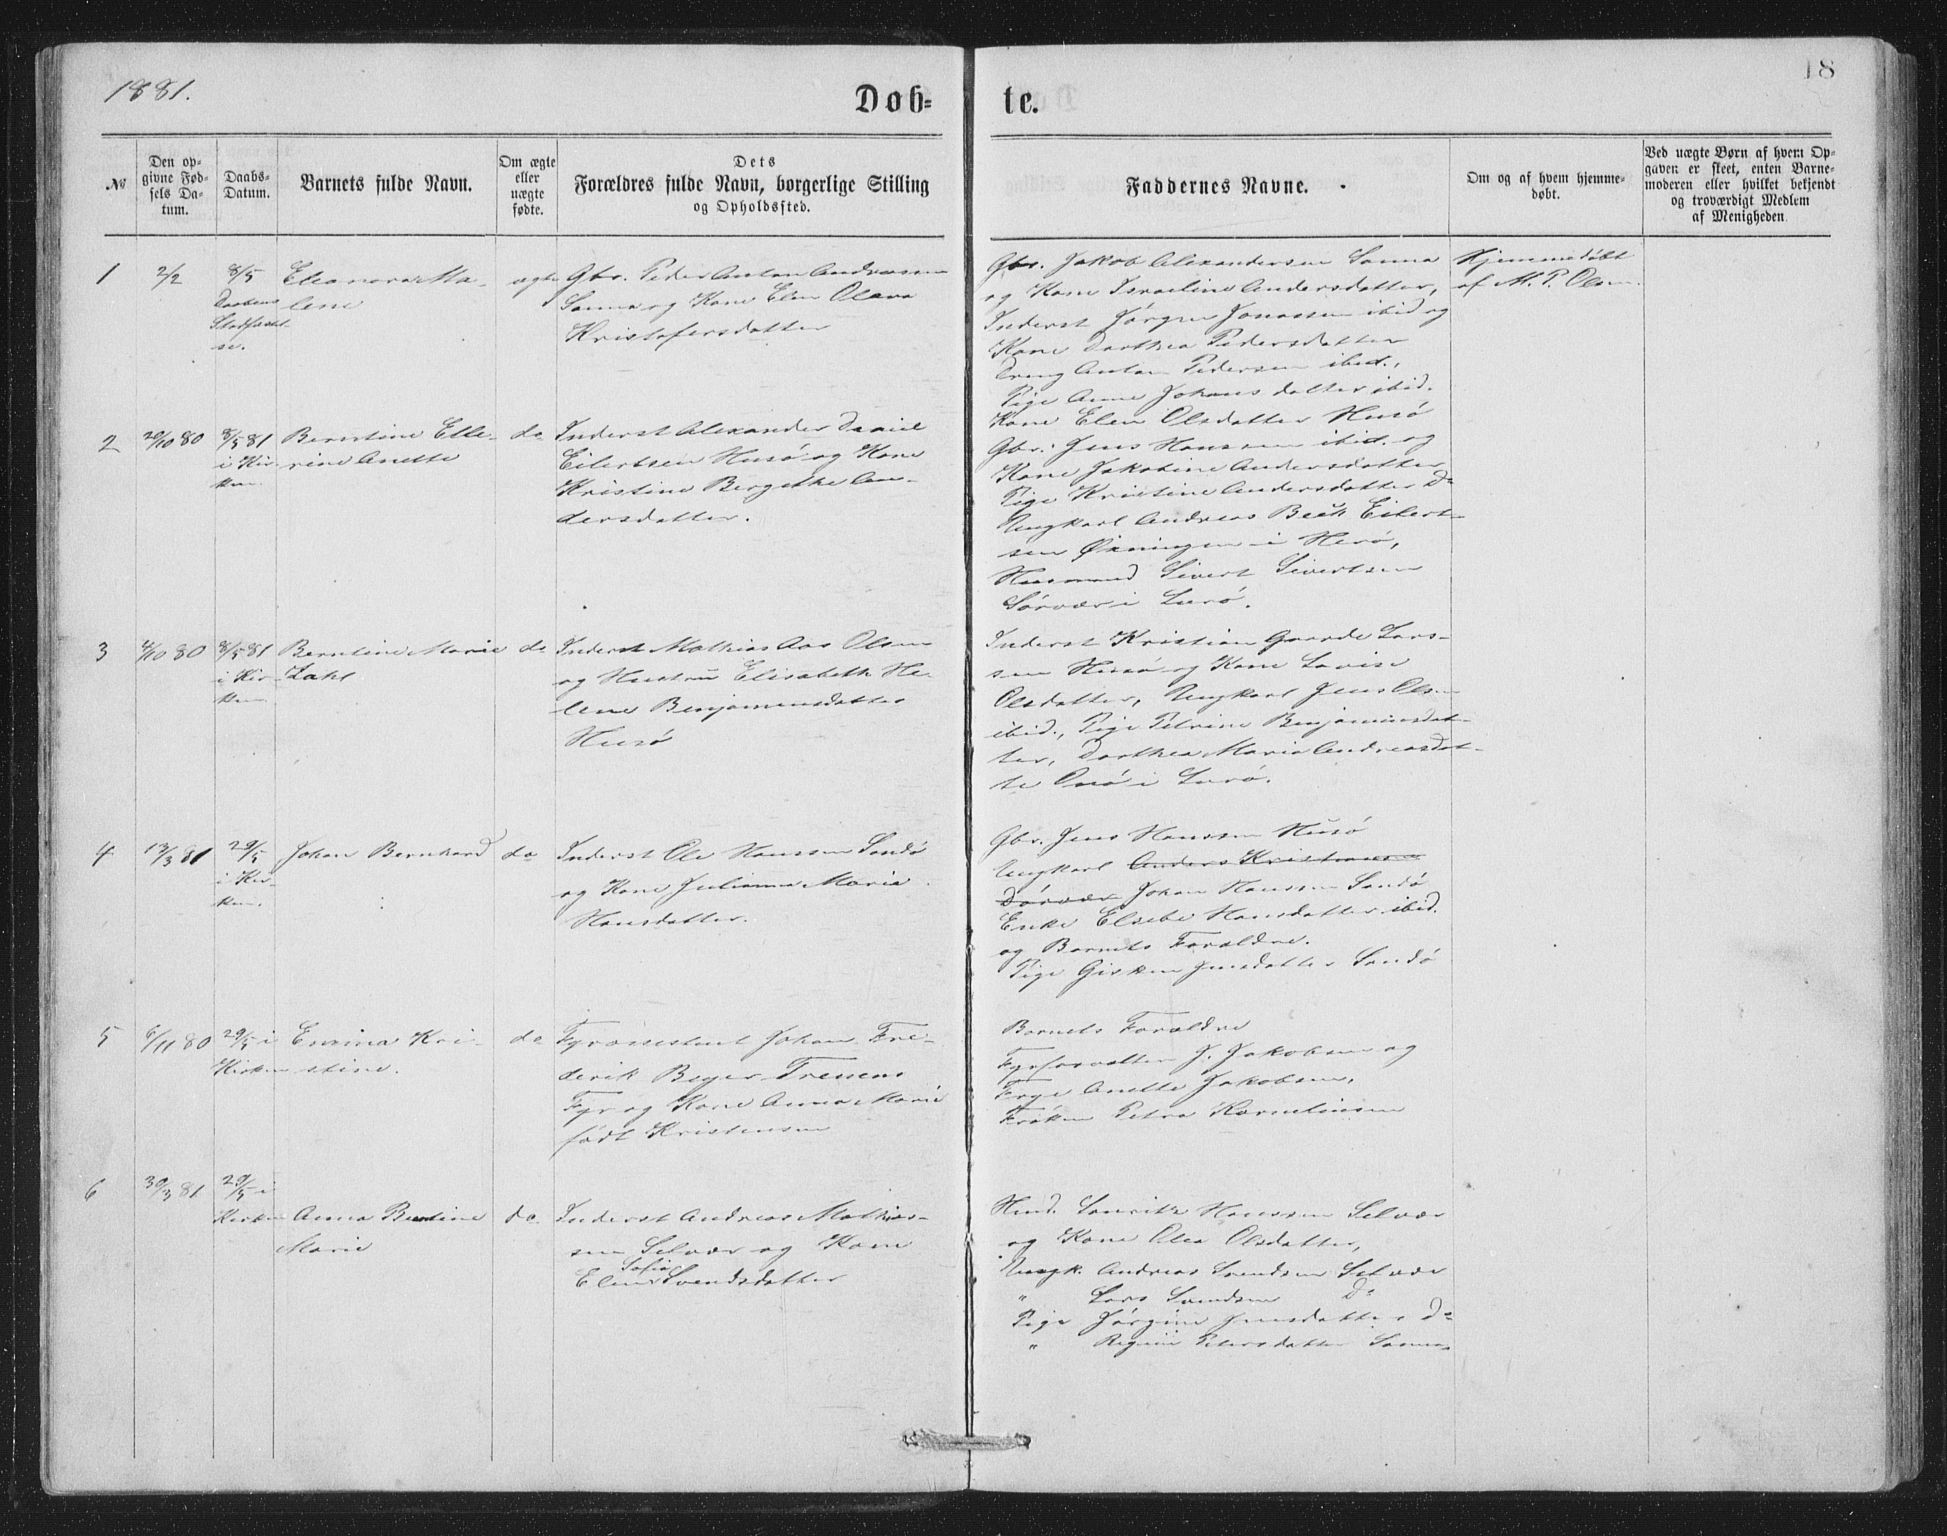 1881.
18
Døb-
te.
№
Den op-
givne Fød-
sels Da-
tum.
Daabs-
Datum.
Barnets fulde Navn.
Om ægte
eller
uægte
fødte.
Dets
Forældres fulde Navn, borgerlige Stilling
og Opholdssted.
Faddernes Navne.
Om og af hvem hjemme-
døbt.
Ved uægte Børn af hvem Op-
gaven er skeet, enten Barne-
moderen eller hvilket bekjendt
og troværdigt Medlem
af Menigheden.
1
2/2
8/5
Daabens
Stadfæstel
se.
Eleonora Ma-
lene
ægte
Gbr. Peder Anton Andreassen
Sanna og Kone Elen Olava
Kristofersdatter
Gbr. Jakob Alexandersen Sanna
og Kone Israeline Andersdatter,
Inderst Jørgen Jonassen ibid og
Kone Dorthea Pedersdatter
Dreng Anton Pedersen ibid.,
Pige Anne Johansdatter ibid.
Hjemmedøbt
af M. P. Olsen.
2
20/10 80
8/5 81
i Kir-
ken.
Berntine Elle-
rine Anette
do
Inderst Alexander Daniel
Eilertsen Husø og Kone
Kristine Bergethe An-
dersdatter.
Kone Elen Olsdatter Husø
Gbr. Jens Hanssen ibid. og
Kone Jakobine Andersdatter
Pige Kristine Andersdatter Do
Ungkarl Andreas Beck Eilert-
sen Øxningen i Herø,
Husmand Sivert Sivertsen
Sørvær i Lurø.
3
4/10 80
8/5 81
i Kir-
ken
Berntine Marie
Zahl
do
Inderst Mathias Aas Olsen
og Hustru Elisabeth He-
lene Benjaminsdatter
Husø
Inderst Kristian Gaarde Lars-
sen Husø og Kone Lovise
Olsdatter, Ungkarl Jens Olsen
ibid., Pige Petrine Benjaminsdat-
ter, Dorthea Maria Andreasdat-
te Onø i Lurø.
4
13/3 81
29/5
i Kir-
ken.
Johan Bernhard
do
Inderst Ole Hanssen Sandø
og Kone Julianna Maria
Hansdatter.
Gbr. Jens Hanssen Husø
Ungkarl Anders Kristiansen
Dørvær Johan Hanssen Sandø
Enke Elsebe Hansdatter ibid.
og Barnets Forældre.
Pige Gisken Jensdatter Sandø
5
6/11 80
29/5 i
Kirken
Emma Kri-
stine.
do
Fyrassistent Johan Fre-
derik Beyer Trænens
Fyr og Kone Anna Marie
født Kristensen
Barnets Forældre
Fyrforvalter J. Jakobsen og
Frue Anette Jakobsen,
Frøken Petra Korneliussen
6
30/3 81
29/5 i
Kirken
Anna Berntine
Marie
do.
Inderst Andreas Mathias-
sen Selvær og Kone
Sofia
Elen Svendsdatter
Hmd. Lauritz Hanssen Selvær
og Kone Olea Olsdatter,
Ungk. Andreas Svendsen Selvær
" Lars Svendsen Do
Pige Jørgine Jensdatter Do
" Regine Petersdatter Sanna